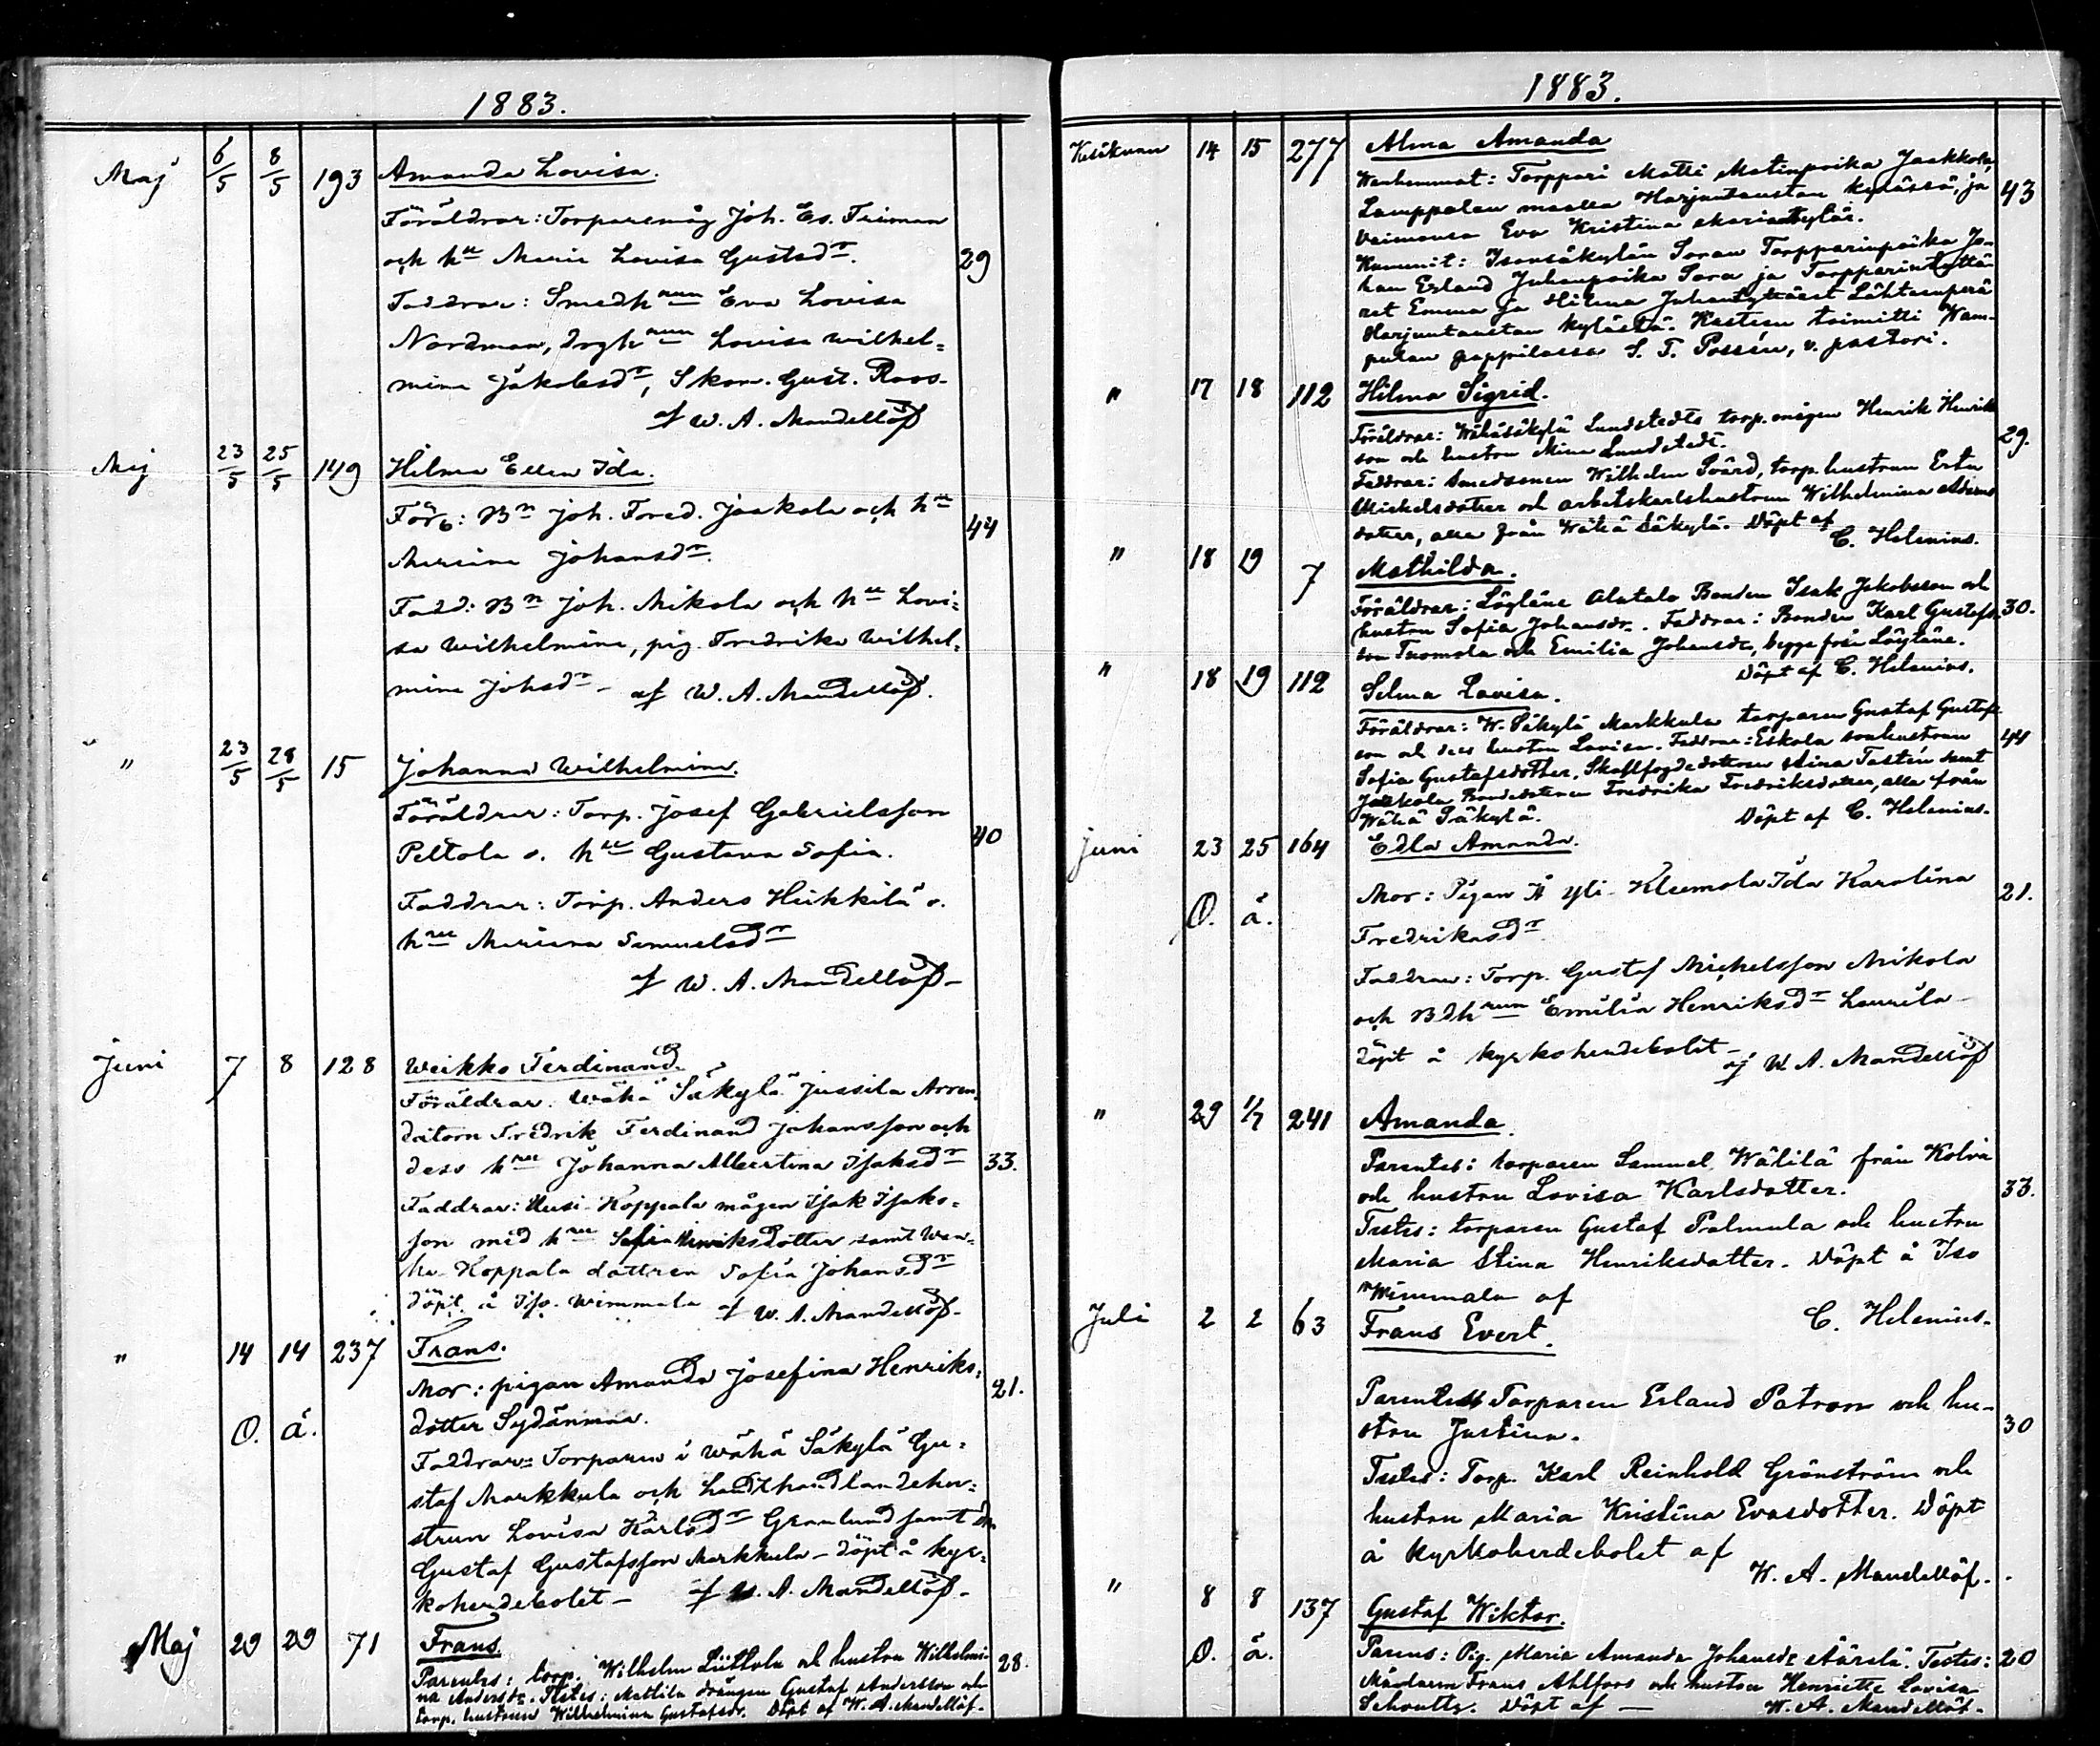 1883.
Maj 6/5 8/5 193 Amanda Lovisa.
Föräldrar: Torparemåg Joh. Es. Friman
och hu Maria Lovisa Gustsdr. 29
Faddrar: Smedhrun Eva Lovisa
Nordman, drghrun Lovisa Wilhel=
mina Jakobsdr, Skom. Gust. Roos-
af W. A. Mandellöf
Maj 23/5 25/5 149 Hilma Ellen Ida.
För: Bn Joh. Fred. Jaakola och hu 44
Mariana Johansdr.
Fadd: Bn Joh. Mikola och hu Lovi=
sa Wilhelmina, pig. Fredrika Wilhel=
mina Johsdr - af W. A. Mandellöf.
" 23/5 28/5 15 Johanna Wilhelmina.
Föräldrar: Torp. Josef Gabrielsson
Peltola o. hu Gustava Sofia. 40
Faddrar: Torp. Anders Heikkilä o.
hru Mariana Samuelsdr
af W. A. Mandellöf-
Juni 7 8 128 Weikko Ferdinand.
Föräldrar: Wähä Säkylä Jussila Arren=
datorn Fredrik Ferdinand Johansson och
dess hru Johanna Albertina Isaksdr 33.
Faddrar: Uusi-Koppala mågen Isak Isaks=
son med hru Sofia Henriksdotter samt Wan=
ha-Koppala dottren Sofia Johansdr
döpt å Iso-Wimmala af W. A. Mandellöf-
" 14 14 237 Frans.
Mor: pigan Amanda Josefina Henriks= 21.
O. ä. dotter Sydänmaa.
Faddrar: Torparen i Wähä Säkylä Gu=
staf Markkula och Landthandlandehu=
strun Lovisa Karlsdr Granlund samt
Gustaf Gustafsson Markkula - döpt å kyr=
koherdebolet - af W. A. Mandellöf-
Maj 29 29 71 Frans.
Parentes: torp. Wilhelm Liittola och hustru Wilhelmi- 28.
na Andersdr. Testes: Mattila drängen Gustaf Andersson och
torp. hustrun Wilhelmina Gustafsdr. Döpt af W. A. Mandellöf-
1883.
Kesäkuun 14 15 277 Alma Amanda
Wanhemmat: Torppari Matti Matinpoika Jaakkola,
Lamppalan maalla Harjuntaustan kylässä, ja 43
vaimonsa Eva Kristina
Kummit: Isonsäkylän Soran Torpparinpoika Jo-
han Erland Juhanpoika Sora ja Torpparintyttä-
ret Emma ja Hilma Juhantyttäret Lähteenperä
Harjuntaustan kylästä. Kasteen toimitti Wam-
pulan pappilassa S. T. Possén, v. pastori.
" 17 18 112 Hilma Sigrid.
Föräldrar: Wähäsäkylä Lundstedts torp.mågen Henrik Henrik
son och hustru Mina Lundstedt. 29.
Faddrar: Smedsonen Wilhelm Svärd, torp. hustrun Erla
Michelsdotter och arbetskarlshustrun Wilhelmina Adams
dotter, alla från Wähä Säkylä. Döpt af
C. Helenius.
" 18 19 7 Mathilda.
Föräldrar: Löytäne Alatalo Bonden Isak Jakobsson och
hustru Sofia Johansdr. Faddrar: Bonden Karl Gustafs- 30.
son Tuomola och Emilia Johansdr, begge från Löytäne.
Döpt af C. Helenius.
" 18 19 112 Selma Lovisa.
Föräldrar: W. Säkylä Markkula torparen Gustaf Gustaf
son och dess hustru Lovisa. Faddrar: Eskola sonhustrun 44
Sofia Gustafsdotter, Skallfogdedottren Stina Tastén samt
Jaakola Bondedottren Fredrika Fredriksdotter, alla från
Wähä Säkylä. Döpt af C. Helenius.
Juni 23 25 164 Edla Amanda.
Mor: Pigan å Yli-Kleemola Ida Karolina 21.
O. ä. Fredriksdr.
Faddrar: Torp. Gustaf Michelsson Mikola
och Bdhrun Emilia Henriksdr Laurila-
döpt å kyrkoherdebolet-
af W. A. Mandellöf
" 29 1/7 241 Amanda.
Parentes: torparen Samuel Wälilä från Kolva
och hustru Lovisa Karlsdotter. 33.
Testes: torparen Gustaf Palmula och hustru
Maria Stina Henriksdotter. Döpt å Iso
Wimmala af
C. Helenius.
Juli 2 2 63 Frans Evert.
Parentes Torparen Erland Patron och hu-
stru Justina. 30
Testes: Torp. Karl Reinhold Grönström och
hustru Maria Kristina Evasdotter. Döpt
å kyrkoherdebolet af
W. A. Mandellöf.
" 8 8 137 Gustaf Wiktor.
O. ä. Parens: Pig. Maria Amanda Johansdr Äärelä. Testes: 20
Mådaren Frans Ahlfors och hustru Henriette Lovisa
Schoultz. Döpt af - W. A. Mandellöf.